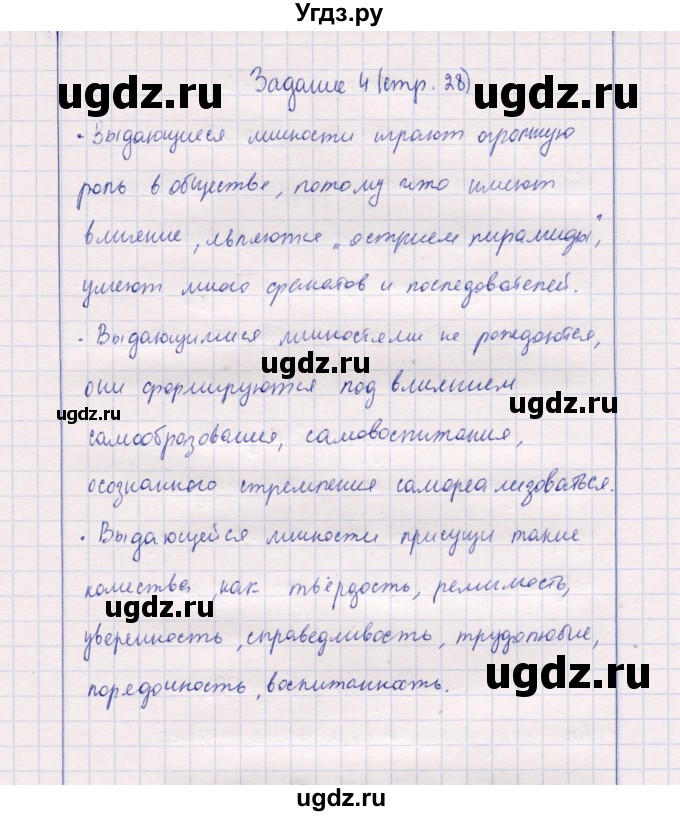 Угдз.ру
Задание 4 (стр. 28)
ugdz.ru ugdz.ru
· Выдающиеся личности играют огромную
роль в обществе, потому что имеют
ugdz.ru
влияние, являются „острием пирамиды",
умеют много фанатов и последователей.
· Выдающимися личностями не рождаются,
ugdz.ru
они формируются под влиянием
ugdz.ru ugdz.ru
самообразования, самовоспитания,
осознанного стремления самореализоваться.
· Выдающейся личности присущи такие
качества, как твёрдость, решимость,
ugdz.ru
уверенность, справедливость, трудолюбие,
ugdz.ru
порядочность, воспитанность.
ugdz.ru